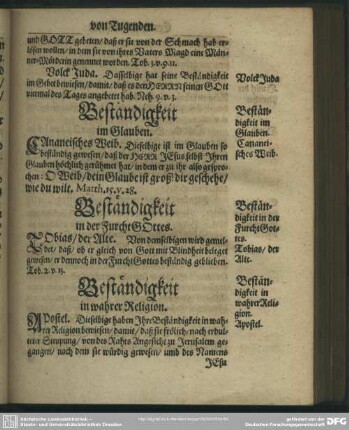 von Tugenden.
und GOTT gebeten/ daß er sie von der Schmach hab er-
lösen wollen/ in dem sie von ihres Vaters Magd eine Män-
ner-Mörderin genennet worden. Tob. 3. v. 9. 11.
Volck Juda. Dasselbige hat seine Beständigkeit
im Gebet bewiesen/ damit/ daß es den HERRN seinen GOtt
viermal des Tages angebetet hab. Neh. 9. v. 3.
Volck Juda
Beständigkeit
im Glauben.
Bestän-
digkeit im
Glauben.
Cananei-
sches Weib.
CAnaneisches Weib. Dieselbige ist im Glauben so
beständig gewesen/ daß der HERR JEsus selbst Ihren
Glauben höchlich gerühmet hat/ in dem er zu ihr also gespro-
chen: O Weib/ dein Glaube ist groß/ dir geschehe/
wie du wilt. Matth. 15. v. 28.
Beständigkeit
in der Furcht GOttes.
Bestän-
digkeit in der
Furcht Got-
tes.
Tobias/ der
Alte.
TObias/ der Alte. Von demselbigen wird gemel-
det/ daß/ ob er gleich von Gott mit Blindheit beleget
gewesen/ er dennoch in der Furcht Gottes beständig geblieben.
Tob. 2. v. 13.
Beständigkeit
in wahrer Religion.
Bestän-
digkeit in
wahrer Reli-
gion.
Apostel.
APostel. Dieselbige haben Ihre Beständigkeit in wah-
rer Religion bewiesen/ damit/ daß sie frölich/ nach erdul-
teter Steupung/ von des Rahts Angesicht zu Jerusalem ge-
gangen/ nach dem sie würdig gewesen/ umb des Namens
JEsu